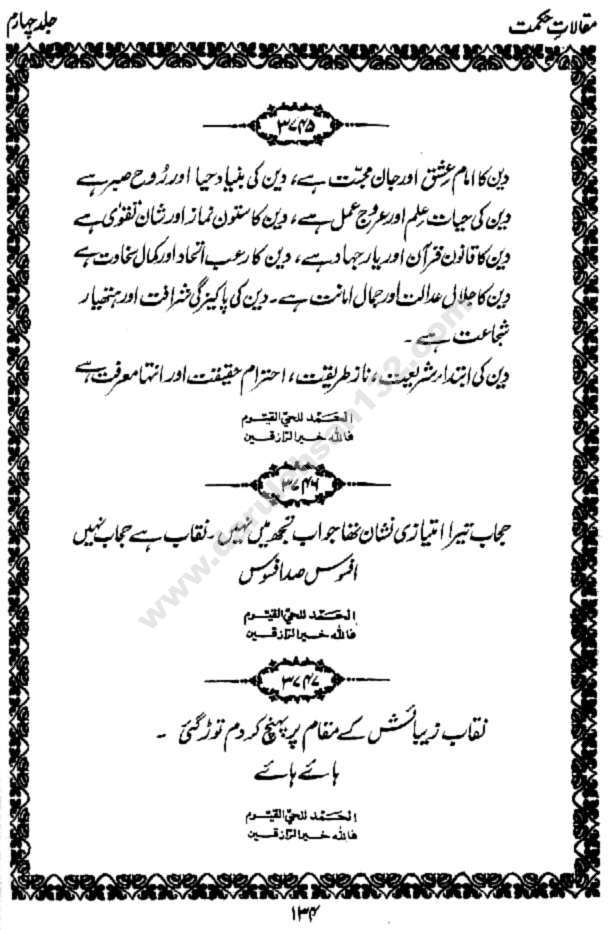 مقالاتِ حکمت
جلد چہارم
۳۷۴۵
دین کا امام عشق اور جان محبت ہے، دین کی بنیاد حیا اور رُوح صبر ہے
دین کی حیات علم اور عروج عمل ہے، دین کا ستون نماز اور شان تقویٰ ہے
دین کا قانون قرآن اور یار جہاد ہے، دین کا رعب اتحاد اور کمال سخاوت ہے
دین کا جلال عدالت اور جمال امانت ہے۔ دین کی پاکیزگی شرافت اور ہتھیار
شجاعت ہے ۔
دین کی ابتداء شریعت، ناز طریقت، احترام حقیقت اور انتہا معرفت ہے
الحَمد للحیّ القیّوم
فاللّٰہ خیر الرّازقین
۳۷۴۶
حجاب تیرا امتیازی نشان تھا جو اب تجھ میں نہیں ۔ نقاب ہے حجاب نہیں
افسوس صد افسوس
الحَمد للحیّ القیّوم
فاللّٰہ خیر الرّازقین
۳۷۴۷
نقاب زیبائش کے مقام پر پہنچ کر دم توڑ گئی ۔
ہائے ہائے
الحَمد للحیّ القیّوم
فاللّٰہ خیر الرّازقین
۱۳۴
www.darulehsan132.com